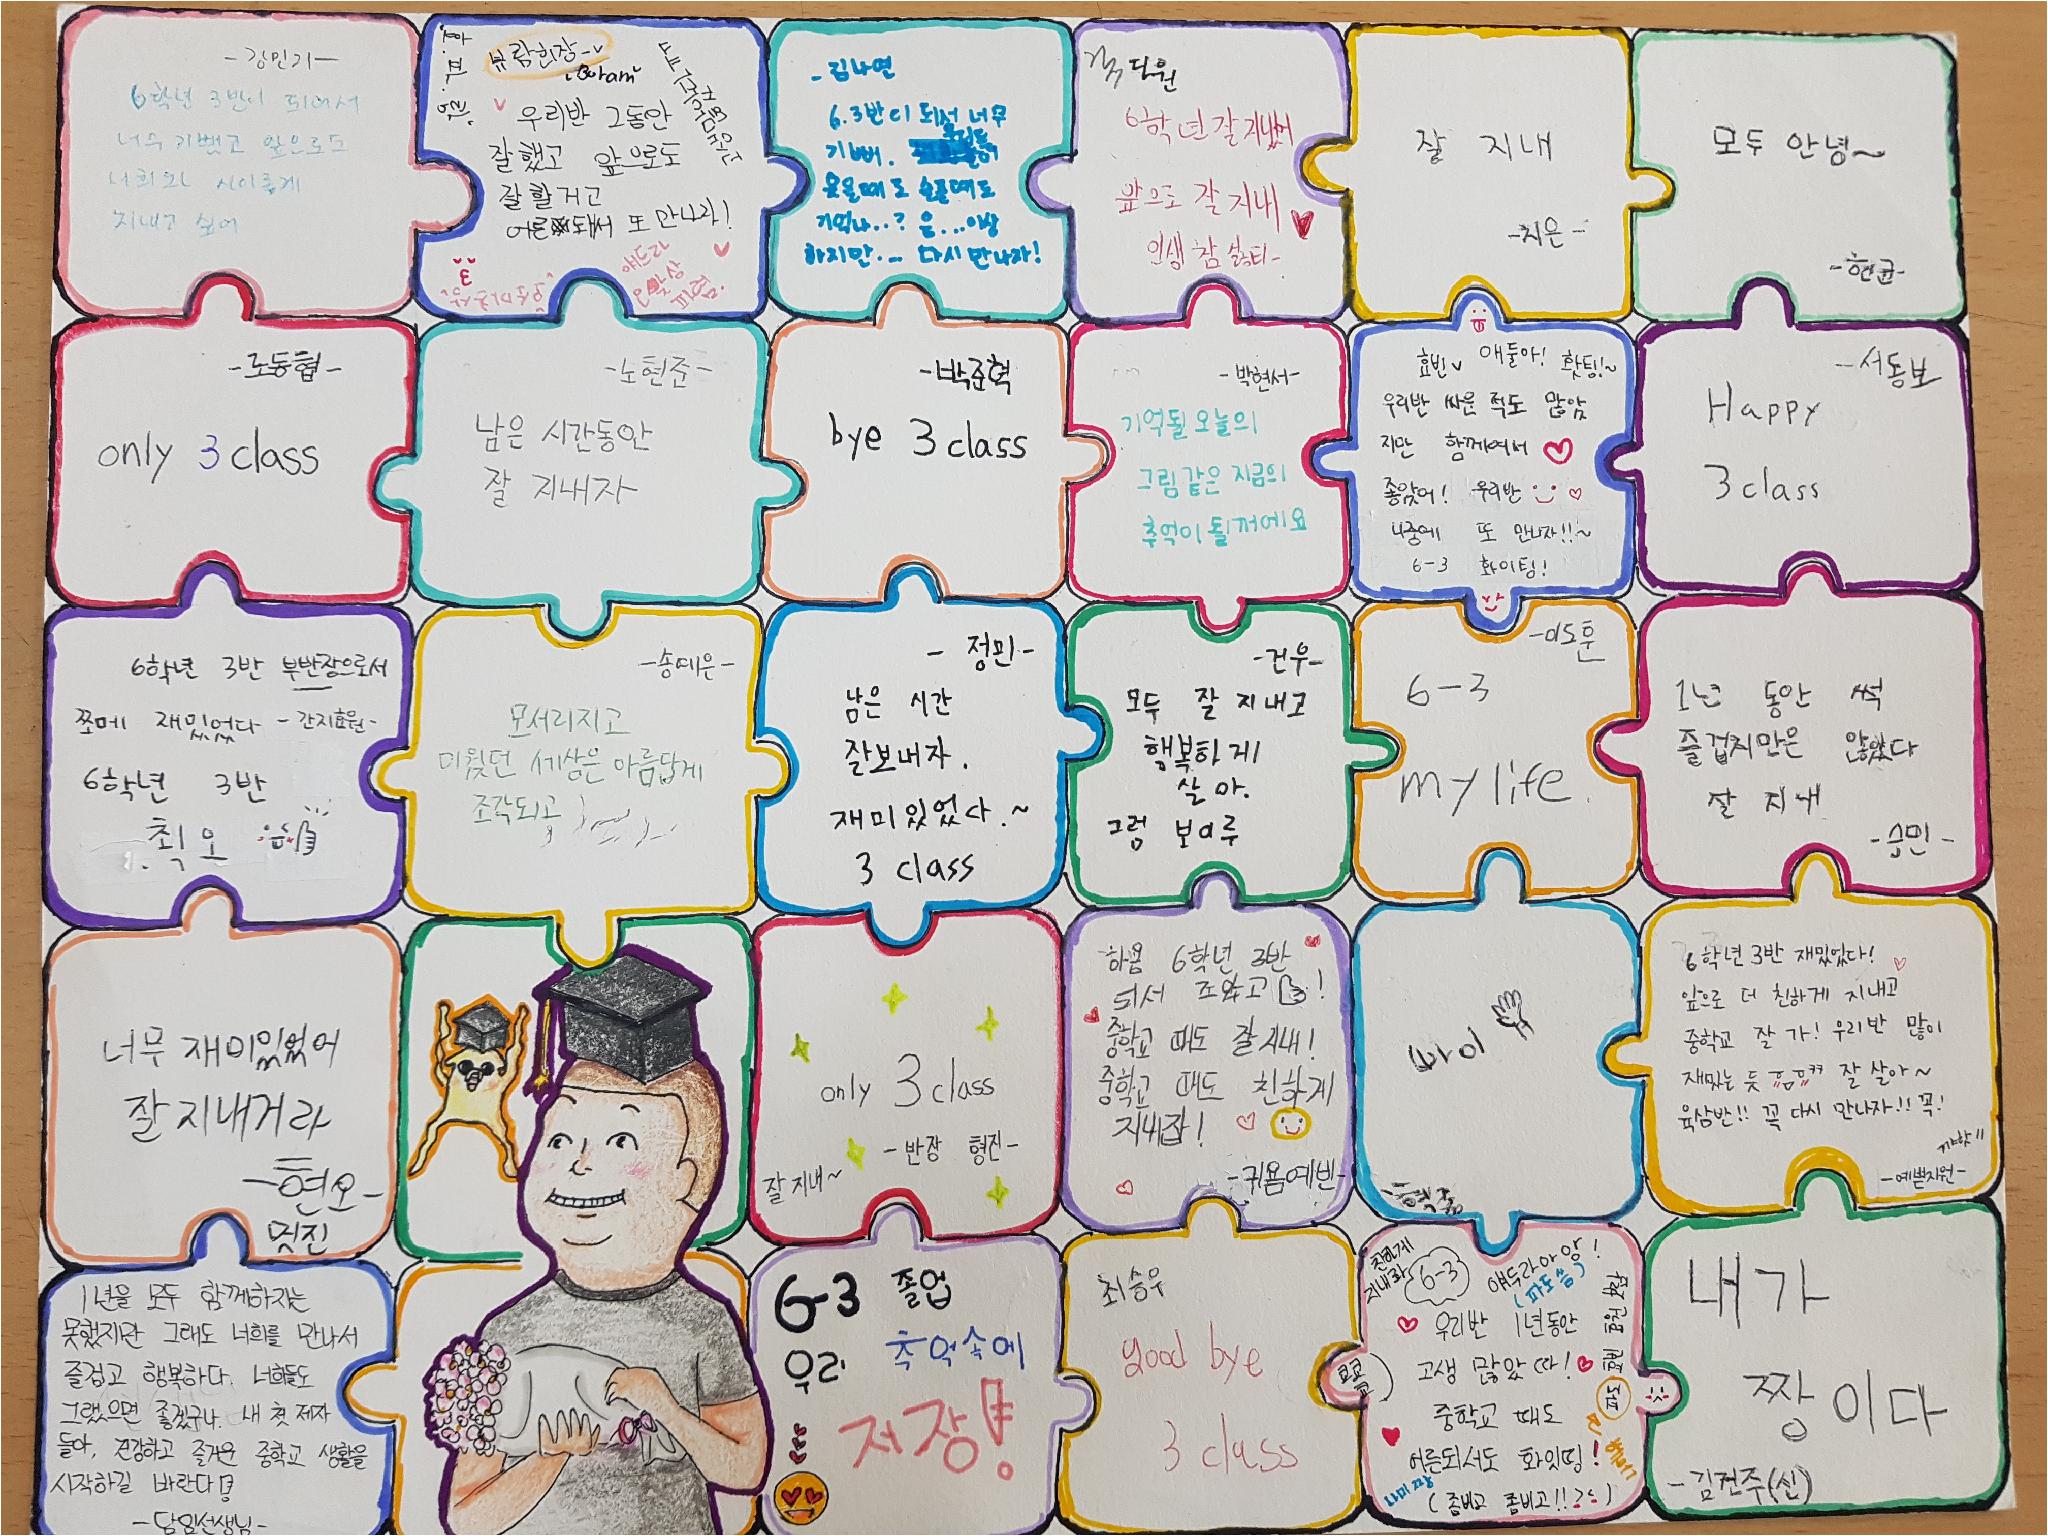 -강민기-
6학년 3반이 되어서
너무 기뻤고 앞으로도
너희와 사이좋게
지내고 싶어
람회장
Boram
우리반 그동안
잘했고 앞으로도
잘할거고
어른 돼서 또 만나자!
얘드라
-김나연
6.3반이 되서 너무
기뻐.
웃을때도 슬플때도
하지만... 다시 만나자!
단원
6학년 잘 지냈어
앞으로 잘 지내
인생 참
잘 지내
-지은-
모두 안녕~
-현균-
-노동협-
only 3 class
-노현준-
남은 시간동안
잘 지내자
-박준혁
bye 3 class
-박현서-
기억될 오늘의
그림 같은 지금의
추억이 될꺼에요
효빈 애둘아! 홧팅!~
우리반 싸운 적도 많았
지만 함께여서
좋았어! 우리반
나중에 또 만나자!!~
6-3 화이팅!
-서동보
Happy
3 class
6학년 3반 부반장으로서
쪼메 재밌었다 -간지효원-
6학년 3반
최오
-송예은-
모서리지고
미웠던 세상은 아름답게
조각되고
-정민-
남은 시간
잘보내자.
재미있었다.~
3 class
-건우-
모두 잘 지내고
행복하게
살아.
그럼 보이루
-이도훈
6-3
my life.
1년 동안 썩
즐겁지만은 않았다
잘 지내
-승민-
너무 재미있었어
잘 지내거라
-현오-
멋진
only 3 class
-반장 형진-
잘 지내~
하욤 6학년 3반
되서 조았고 !
중학교 때도 잘 지내!
중학교 때도 친하게
지내잡!
-귀욤예빈-
빠이
6학년 3반 재밌었다!
앞으로 더 친하게 지내고
중학교 잘 가! 우리반 많이
재밌는 듯 잘 살아~
육삼반!! 꼭 다시 만나자!! 꼭!
꺄핫!!
-예쁜지원-
1년을 모두 함께하지는
못했지만 그래도 너희를 만나서
즐겁고 행복하다. 너희들도
그랬으면 좋겠구나. 내 첫 제자
들아, 건강하고 즐거운 중학교 생활을
시작하길 바란다
-담임선생님-
6-3 졸업
우리 추억속에
저장!
최승우
good bye
3 class
친하게
지내좌
6-3
얘두라아앙!
우리반 1년동안
고생 많았따!
중학교 때도
어른되서도 화잇띵!
(좀비고 좀비고!!)
내가
짱이다
-김건주(신)